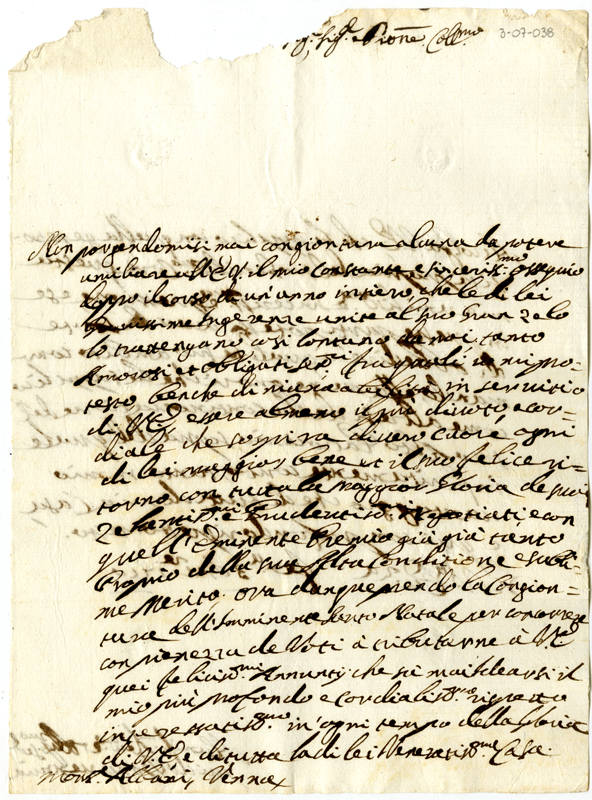 Sig.r e Pron̄e Coll.mo
3-07-038
Non porgendomisi mai congiontura alcuna da potere
umiliare a V.E. il mio constante, e sinceriss.mo ossequio
dopo il corso di un'anno intiero, che le di lei
Ingerenze unite al suo gran zelo
lo trattengano così lontano da noi, tanto
Amorosi et obligatiss.mi fra quali io mi pro=
testo benche di niuna in servitio
di V.E. essere almeno il più divoto, e cor=
diale che sospira di vero cuore ogni
di lei maggior bene et il suo felice ri=
torno con tutta la maggior Gloria de suoi
Zelantiss.mi e Prudentiss.mi Negotiati, e con
quell'Eminente Premio già già tanto
Proprio della sua Alta Conditione e subli=
me Merito. Ora dunque avendo la Congion=
tura dell'Imminente Santo Natale per concorrere
con pienezza de Voti à tributarne à V.E.
quei feliciss.mi Annunzij che sà mai idearsi il
mio più profondo e Cordialiss.mo rispetto
interessatiss.mo in ogni tempo della Gloria
di V.E. e di tutta la di lei Veneratiss.ma Casa.
Mons.r Albani, Vienna